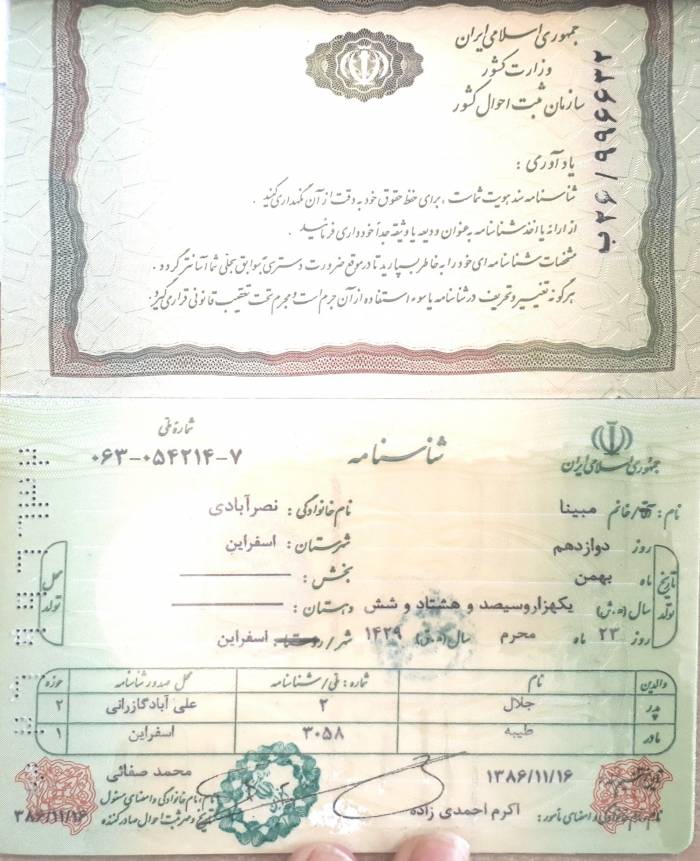 جمهوری اسلامی ایران
وزارت کشور
سازمان ثبت احوال کشور
ب۲۶/۹۹۶۶۳۲
یادآوری :
شناسنامه سند هویت شماست ، برای حفظ حقوق خود به دقت از آن نگهداری کنید .
از ارائه یا اخذ شناسنامه به عنوان ودیعه یا وثیقه جداً خودداری فرمائید .
مشخصات شناسنامه‌ای خود را به خاطر بسپارید تا در موقع ضرورت دسترسی به سوابق سجلی شما آسانتر گردد .
هرگونه تغییر و تحریف در شناسنامه یا سوء استفاده از آن جرم است و مجرم تحت تعقیب قانونی قرار می‌گیرد .
جمهوری اسلامی ایران
شناسنامه
شماره ملی
۰۶۳-۰۵۴۲۱۴-۷
نام : آقا/خانم مبینا نام خانوادگی : نصرآبادی
تاریخ تولد
روز دوازدهم شهرستان : اسفراین
ماه بهمن بخش :
سال (ه.ش) یکهزاروسیصد و هشتاد و شش دهستان :
روز ۲۳ ماه محرم سال (ه.ق) ۱۴۲۹ شهر / روستا : اسفراین
محل تولد
والدین نام شماره : ملی/شناسنامه محل صدور شناسنامه حوزه
پدر جلال ۲ علی آبادگازرانی ۲
مادر طیبه ۳۰۵۸ اسفراین ۱
۱۳۸۶/۱۱/۱۶ محمد صفائی
نام خانوادگی و امضای مأمور : اکرم احمدی زاده
نام ، نام خانوادگی و امضای مسئول
و مهر ثبت احوال صادرکننده
۱۳۸۶/۱۱/۱۶